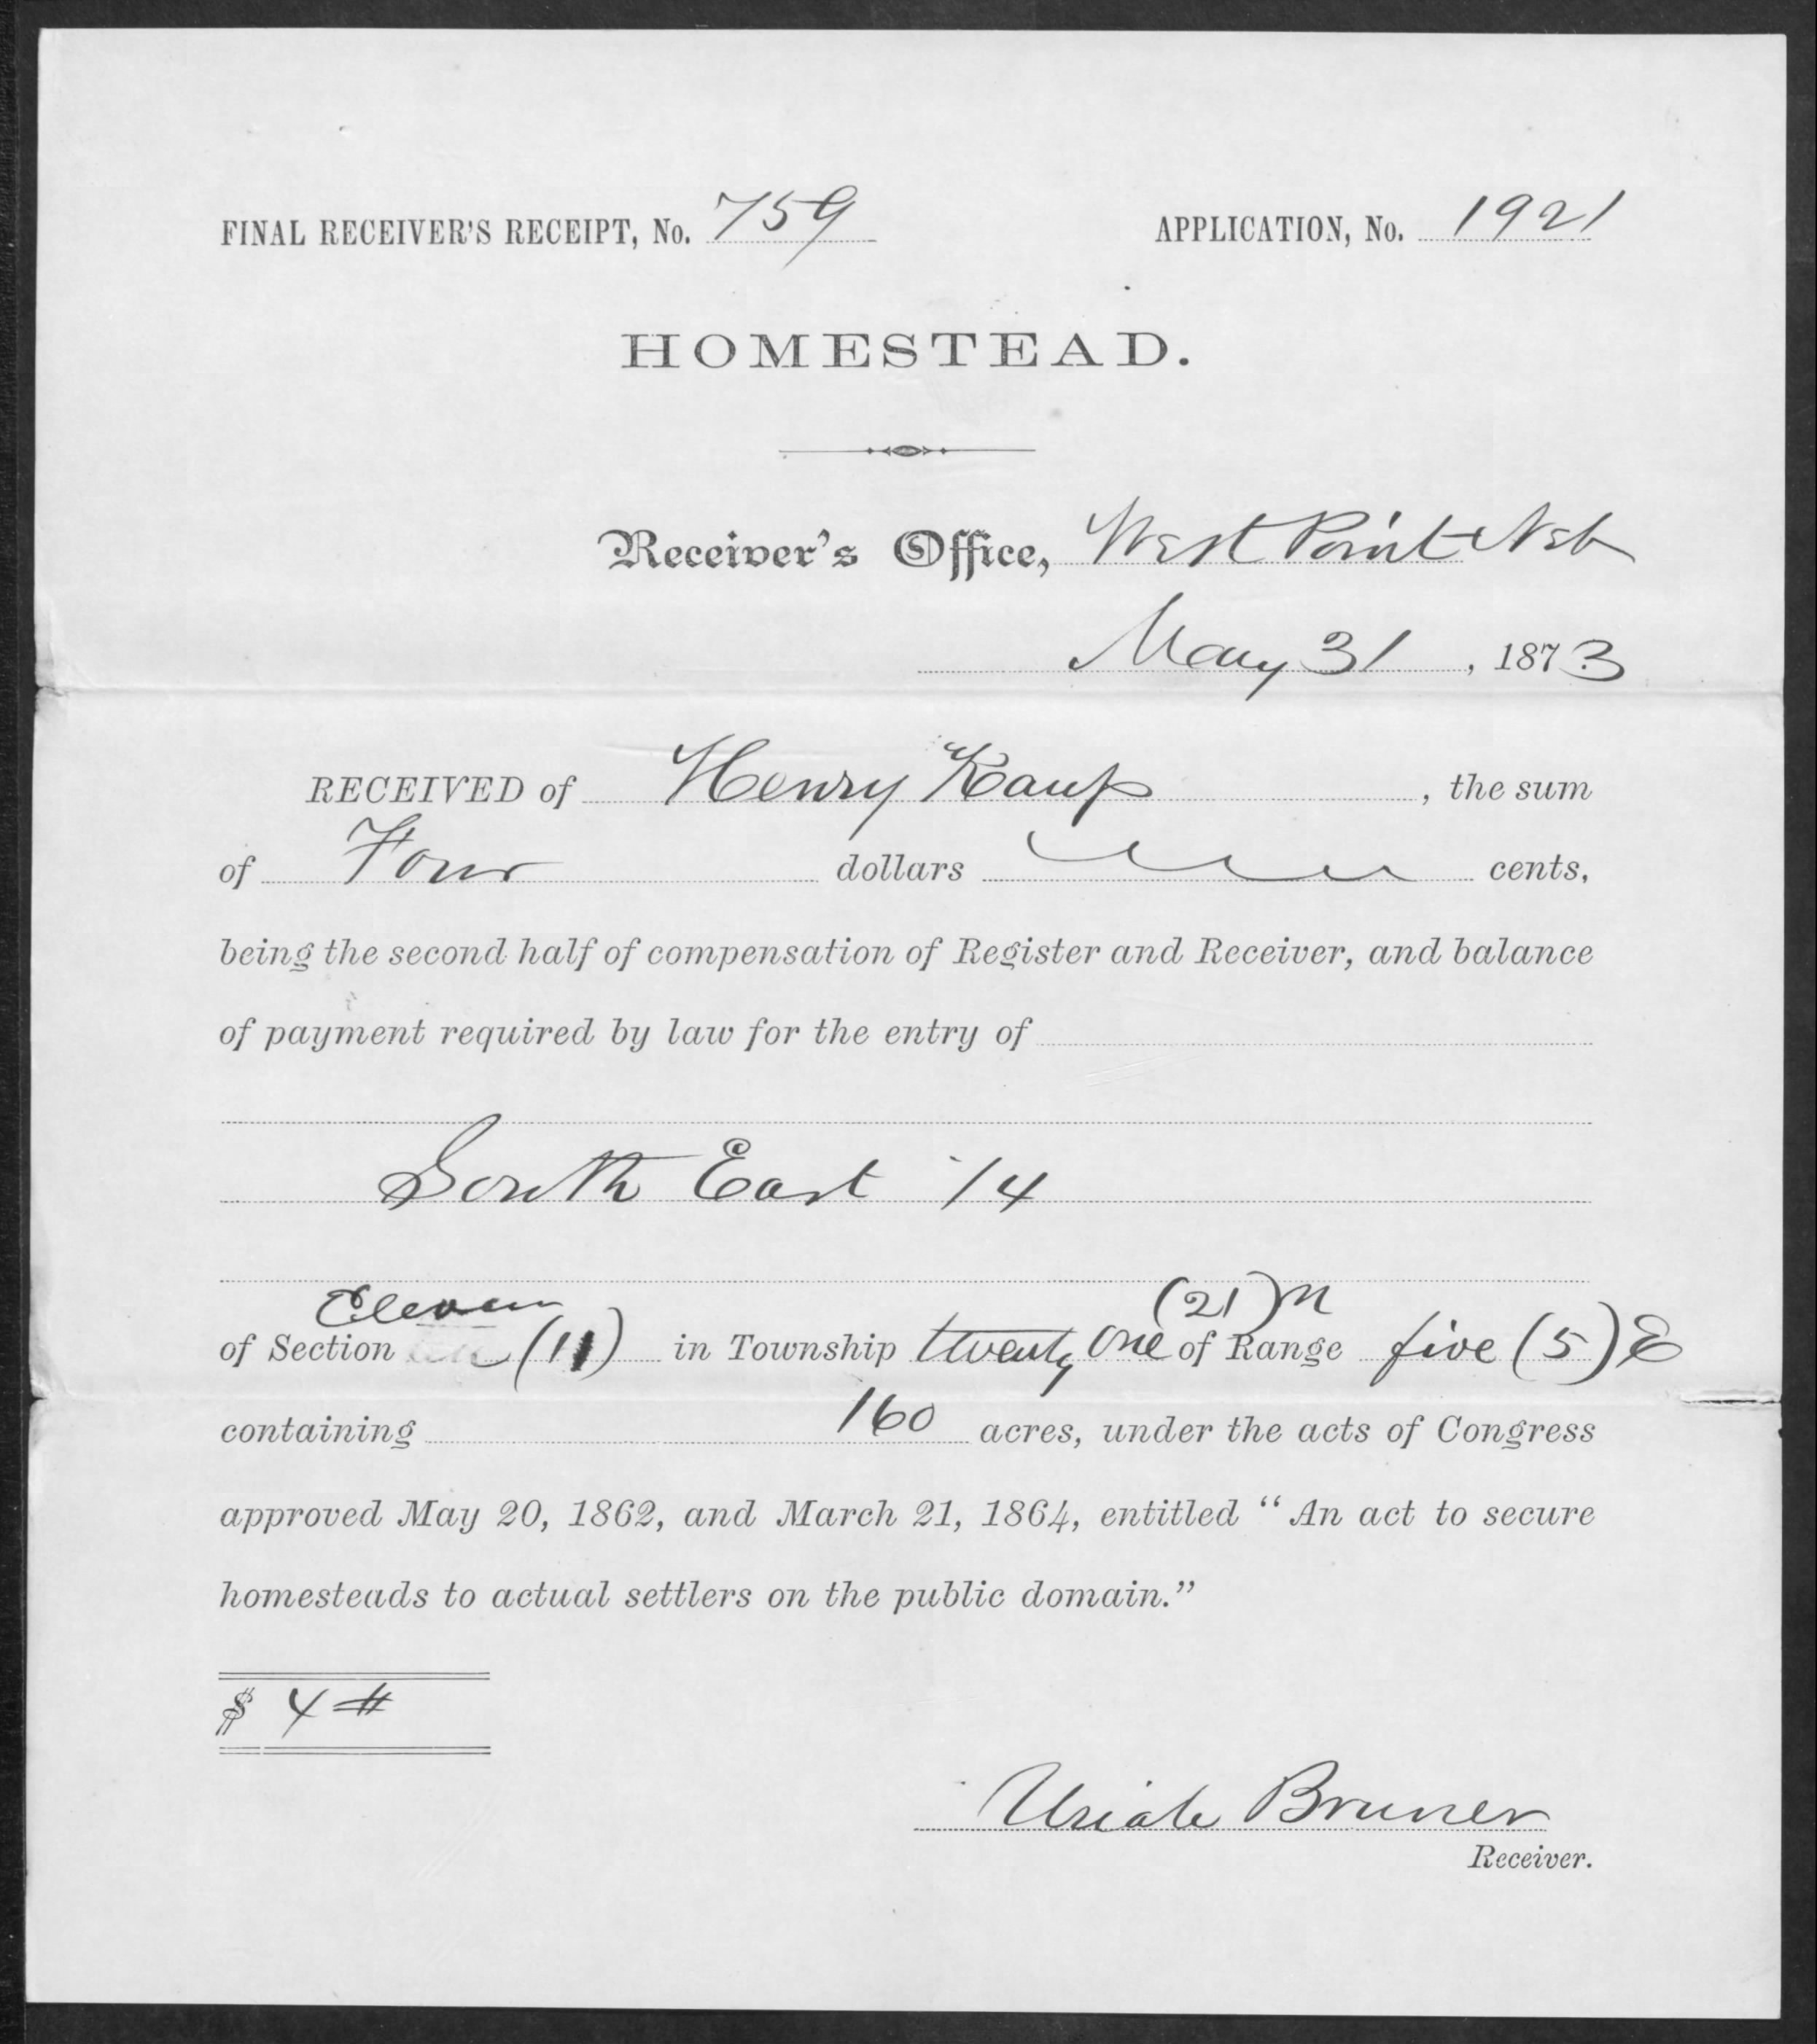 FINAL RECEIVER'S RECEIPT, No. 759 APPLICATION, No. 1921
HOMESTEAD.
Receiver's Office, West Point Neb
May 31, 1873
RECEIVED of Henry Kaup, the sum
of Four dollars cents,
being the second half of compensation of Register and Receiver, and balance
of payment required by law for the entry of
South East 1/4
Eleven (21) N
of Section (11) in Township twenty one of Range five (5) E
containing 160 acres, under the acts of Congress
approved May 20, 1862, and March 21, 1864, entitled "An act to secure
homesteads to actual settlers on the public domain."
$ 4
Uriah Bruner
Receiver.